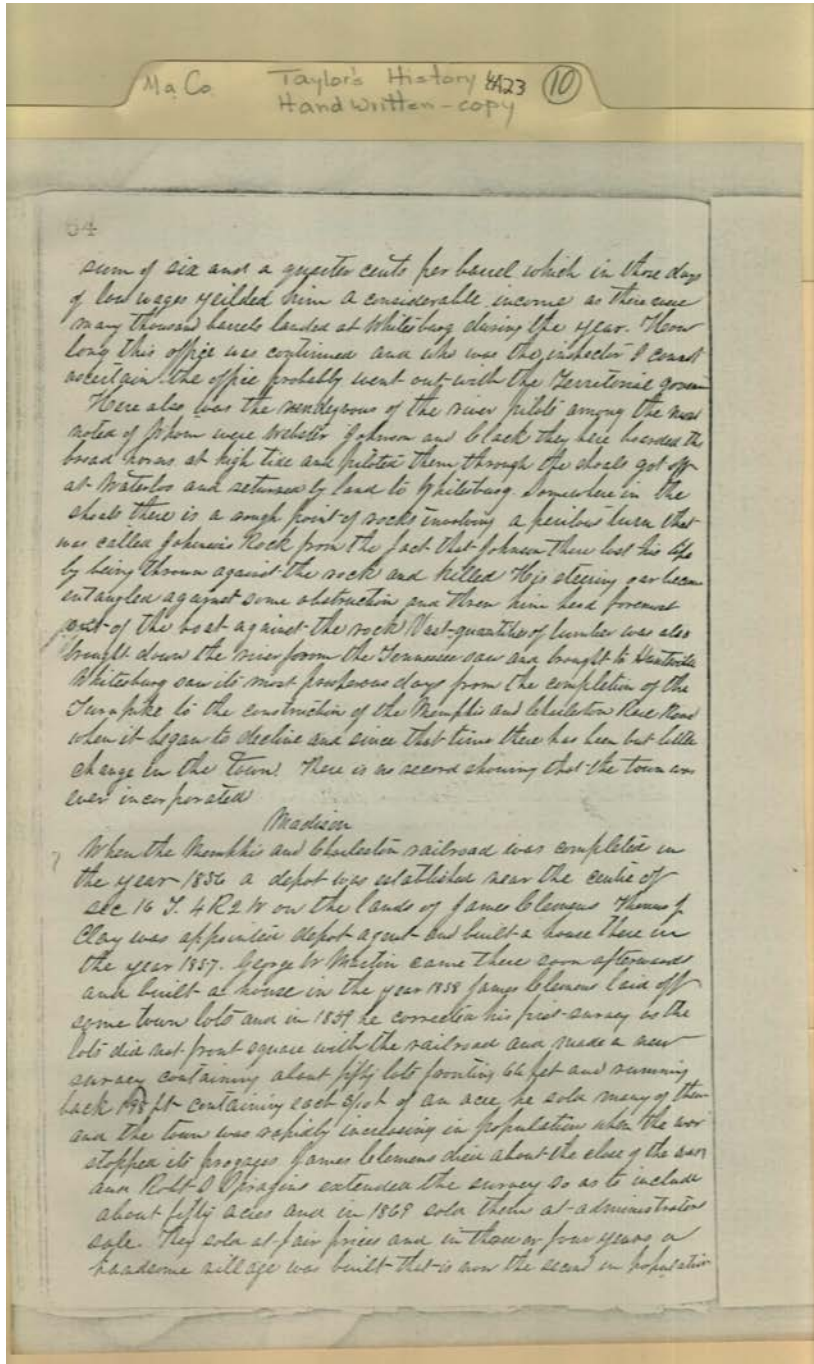 Ma. Co. Taylor's History 4A23 10
Handwritten - copy
54
sum of six and a quarter cents per barrel which in those days
of low wages yeilded him a considerable income as there were
many thousand barrels landed at Whitesburg during the year. How
long this office was continued and who was the inspector I cannot
ascertain the office probably went out with the Territorial govern
Here also was the rendezvous of the river pilots among the most
noted of whom were Webster Johnson and Black they here boarded the
broad horns at high tide and piloted them through the shoals got off
at Waterloo and returned by land to Whitesburg. Somewhere in the
shoals there is a rough point of rocks involving a perilous turn that
was called Johnsons Rock from the fact that Johnson there lost his life
by being thrown against the rock and killed His steering oar became
entangled against some obstruction and threw him head foremost
out of the boat against the rock Vast quantities of lumber was also
brought down the river from the Tennessee saw and brought to Huntsville
Whitesburg saw its most prosperous days from the completion of the
Turnpike to the construction of the Memphis and Charleston Rail Road
when it began to decline and since that time there has been but little
change in the town. There is no record showing that the town was
ever incorporated
Madison
When the Memphis and Charleston railroad was completed in
the year 1856 a depot was established near the centre of
sec 16 T. 4 R 2 W on the lands of James Clemens Thomas J
Clay was appointed depot agent and built a house there in
the year 1857. George W Martin came there soon afterwards
and built a house in the year 1858 James Clemens laid off
some town lots and in 1859 he corrected his first survey as the
lots did not front square with the railroad and made a new
survey containing about fifty lots fronting 66 feet and running
back 198 ft containing each of an acre he sold many of them
and the town was rapidly increasing in population when the war
stopped its progress James Clemens died about the close of the war
and Robt S Spragins extended the survey so as to include
about fifty acres and in 1869 sold them at administrators
sale. They sold at fair prices and in three or four years a
handsome village was built that is now the second in population